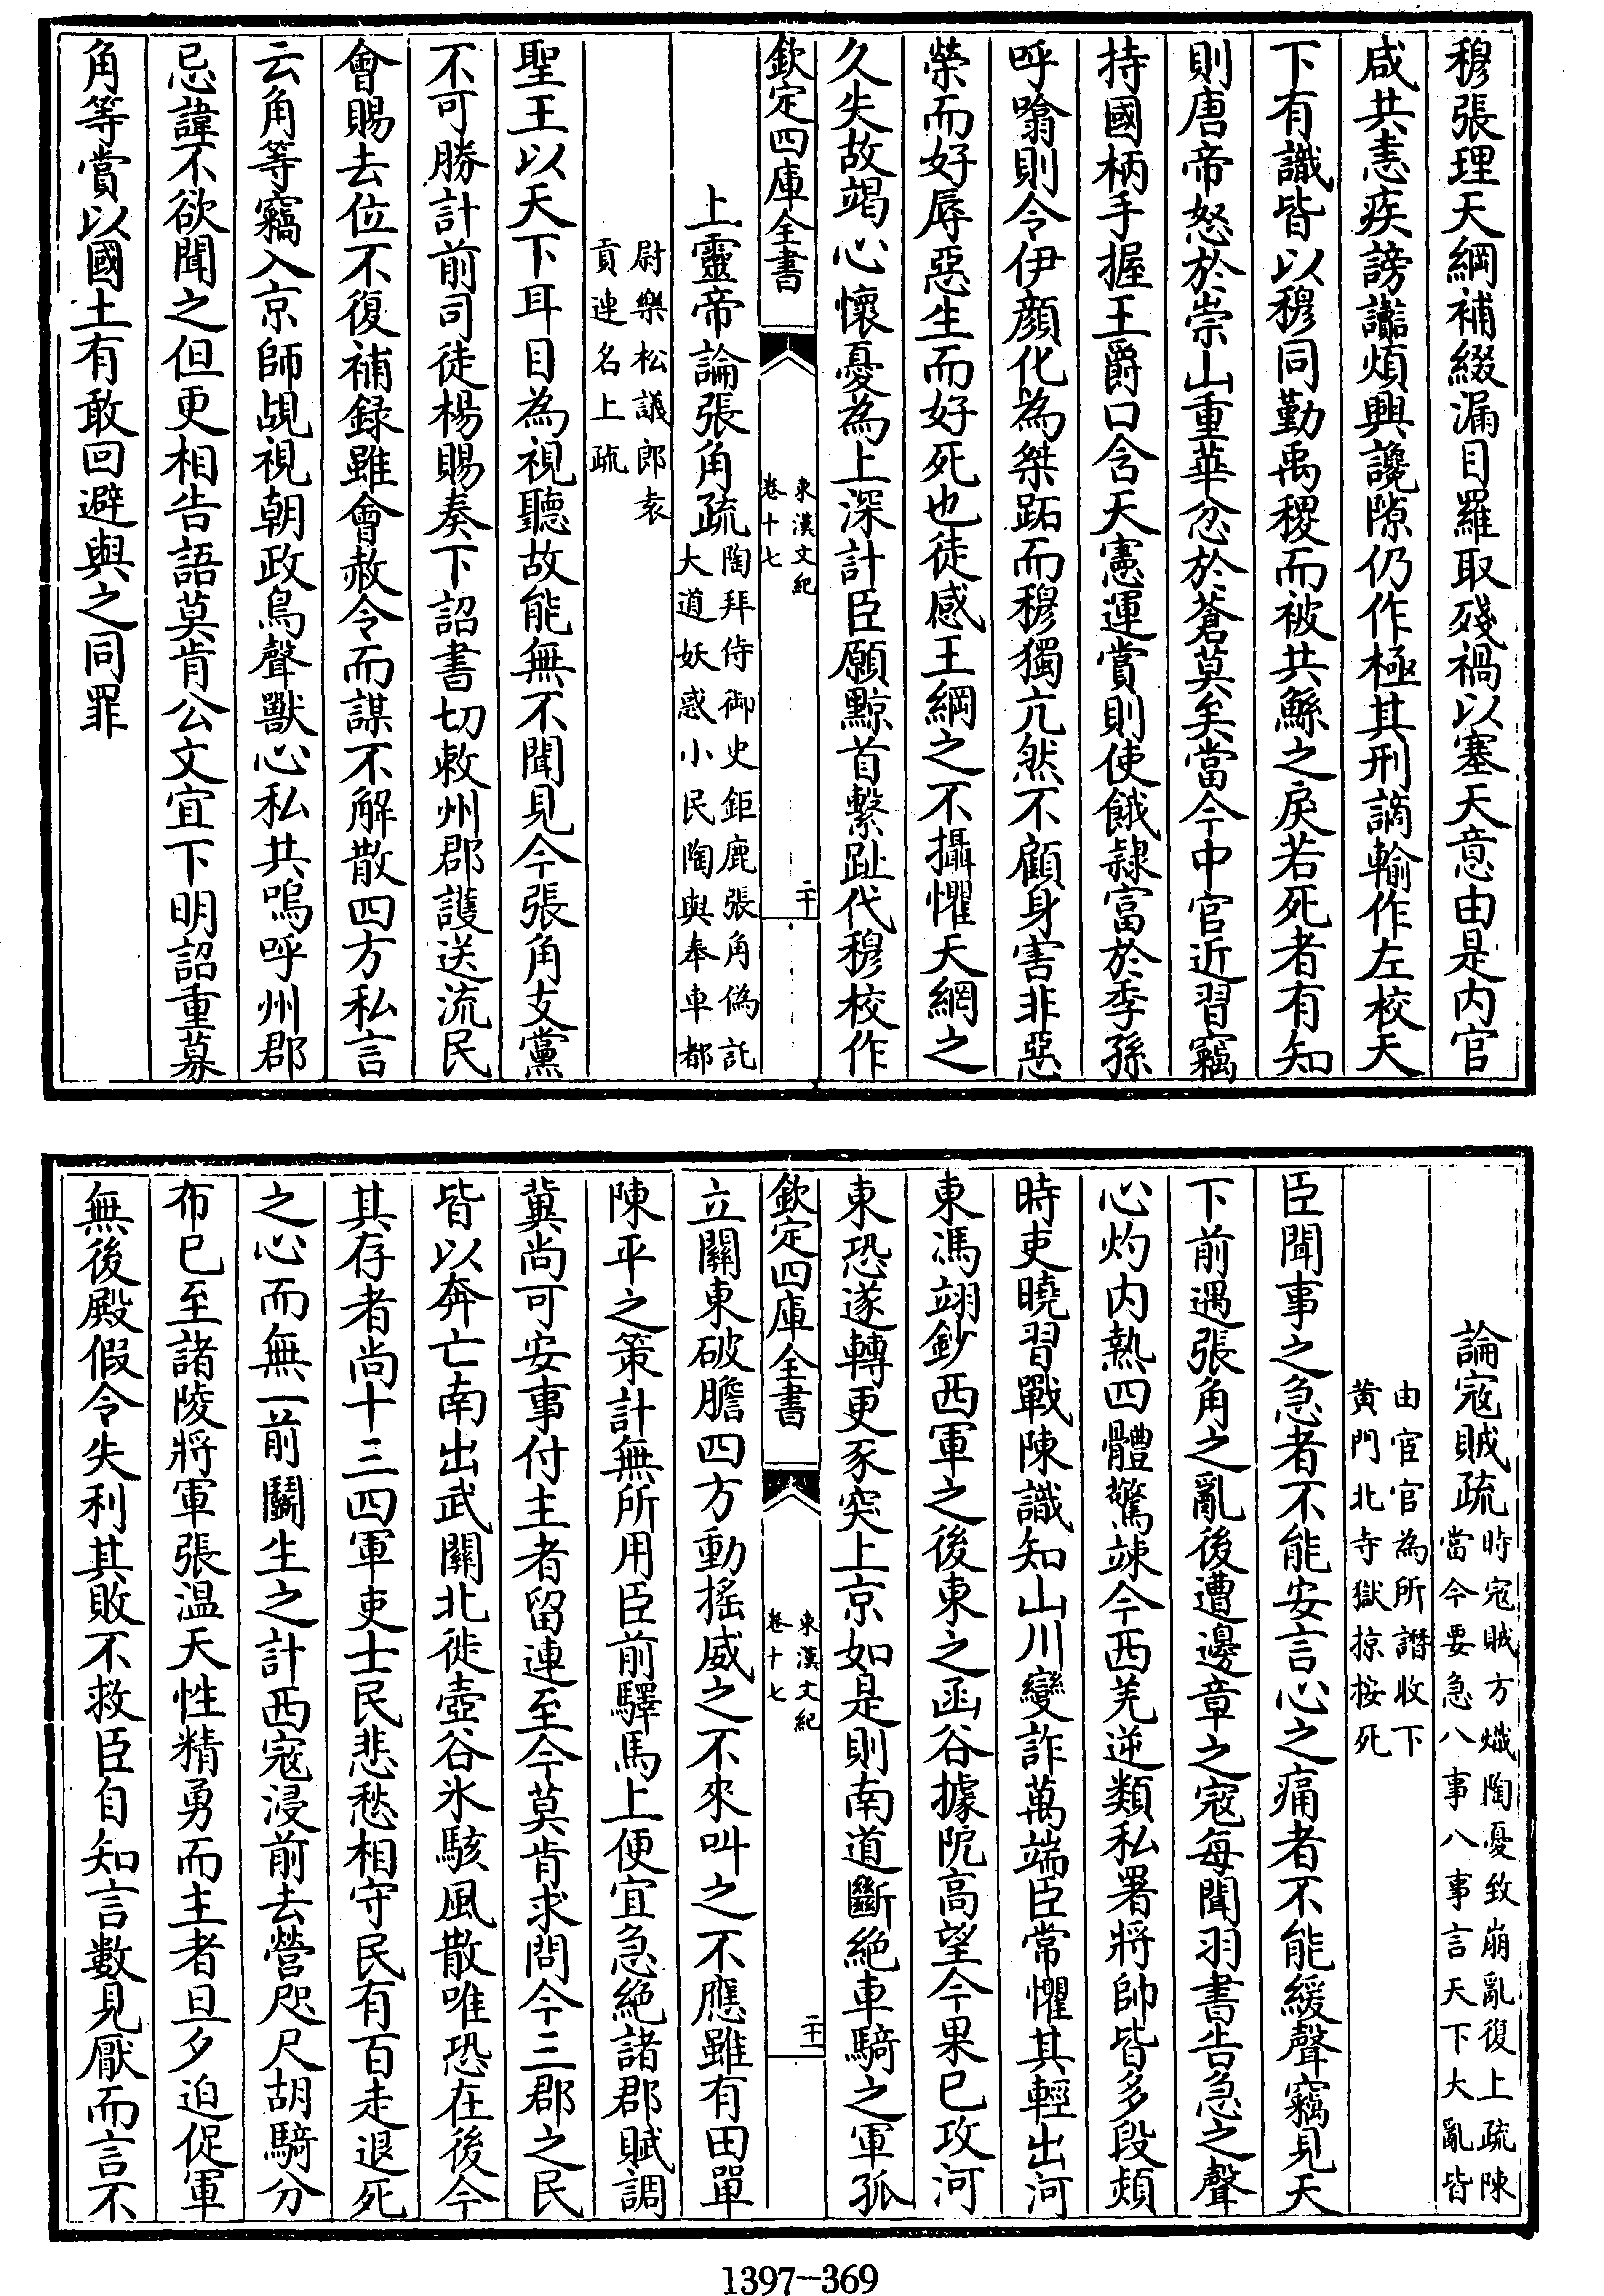 穆張理天綱補綴漏目羅取殘禍以塞天意由是内官
咸共恚疾謗讟煩興讒隙仍作極其刑讁輸作左校天
下有識皆以穆同勤禹稷而被共鯀之戾若死者有知
則唐帝怒於崇山重華忿於蒼莫矣當今中官近習竊
持國柄手握王爵口含天憲運賞則使餓隷富於季孫
呼噏則令伊顔化為桀跖而穆獨亢然不顧身害非惡
榮而好辱惡生而好死也徒感王綱之不攝懼天網之
久失故竭心懷憂為上深計臣願黥首繫趾代穆校作
欽定四庫全書
東漢文紀
卷十七
二十
上靈帝論張角疏
陶拜侍御史鉅鹿張角偽託
大道妖惑小民陶與奉車都
尉樂松議郎袁
貢連名上疏
聖王以天下耳目為視聽故能無不聞見今張角支黨
不可勝計前司徒楊賜奏下詔書切敕州郡護送流民
會賜去位不復補録雖會赦令而謀不解散四方私言
云角等竊入京師覘視朝政鳥聲獸心私共嗚呼州郡
忌諱不欲聞之但更相告語莫肯公文宜下明詔重募
角等賞以國土有敢回避與之同罪
論寇賊疏
時寇賊方熾陶憂致崩亂復上疏陳
當今要急八事八事言天下大亂皆
由宦官為所譖收下
黄門北寺獄掠按死
臣聞事之急者不能安言心之痛者不能緩聲竊見天
下前遇張角之亂後遭邊章之寇每聞羽書告急之聲
心灼内熱四體驚竦今西羌逆類私署將帥皆多段熲
時吏曉習戰陳識知山川變詐萬端臣常懼其輕出河
東馮翊鈔西軍之後東之函谷據阨高望今果已攻河
東恐遂轉更豕突上京如是則南道斷絶車騎之軍孤
欽定四庫全書
東漢文紀
卷十七
二十一
立關東破膽四方動摇威之不來叫之不應雖有田單
陳平之策計無所用臣前驛馬上便宜急絶諸郡賦調
冀尚可安事付主者留連至今莫肯求問今三郡之民
皆以奔亡南出武關北徙壺谷氷駭風散唯恐在後今
其存者尚十三四軍吏士民悲愁相守民有百走退死
之心而無一前鬬生之計西寇浸前去營咫尺胡騎分
布已至諸陵將軍張温天性精勇而主者旦夕迫促軍
無後殿假令失利其敗不救臣自知言數見厭而言不
1397—369